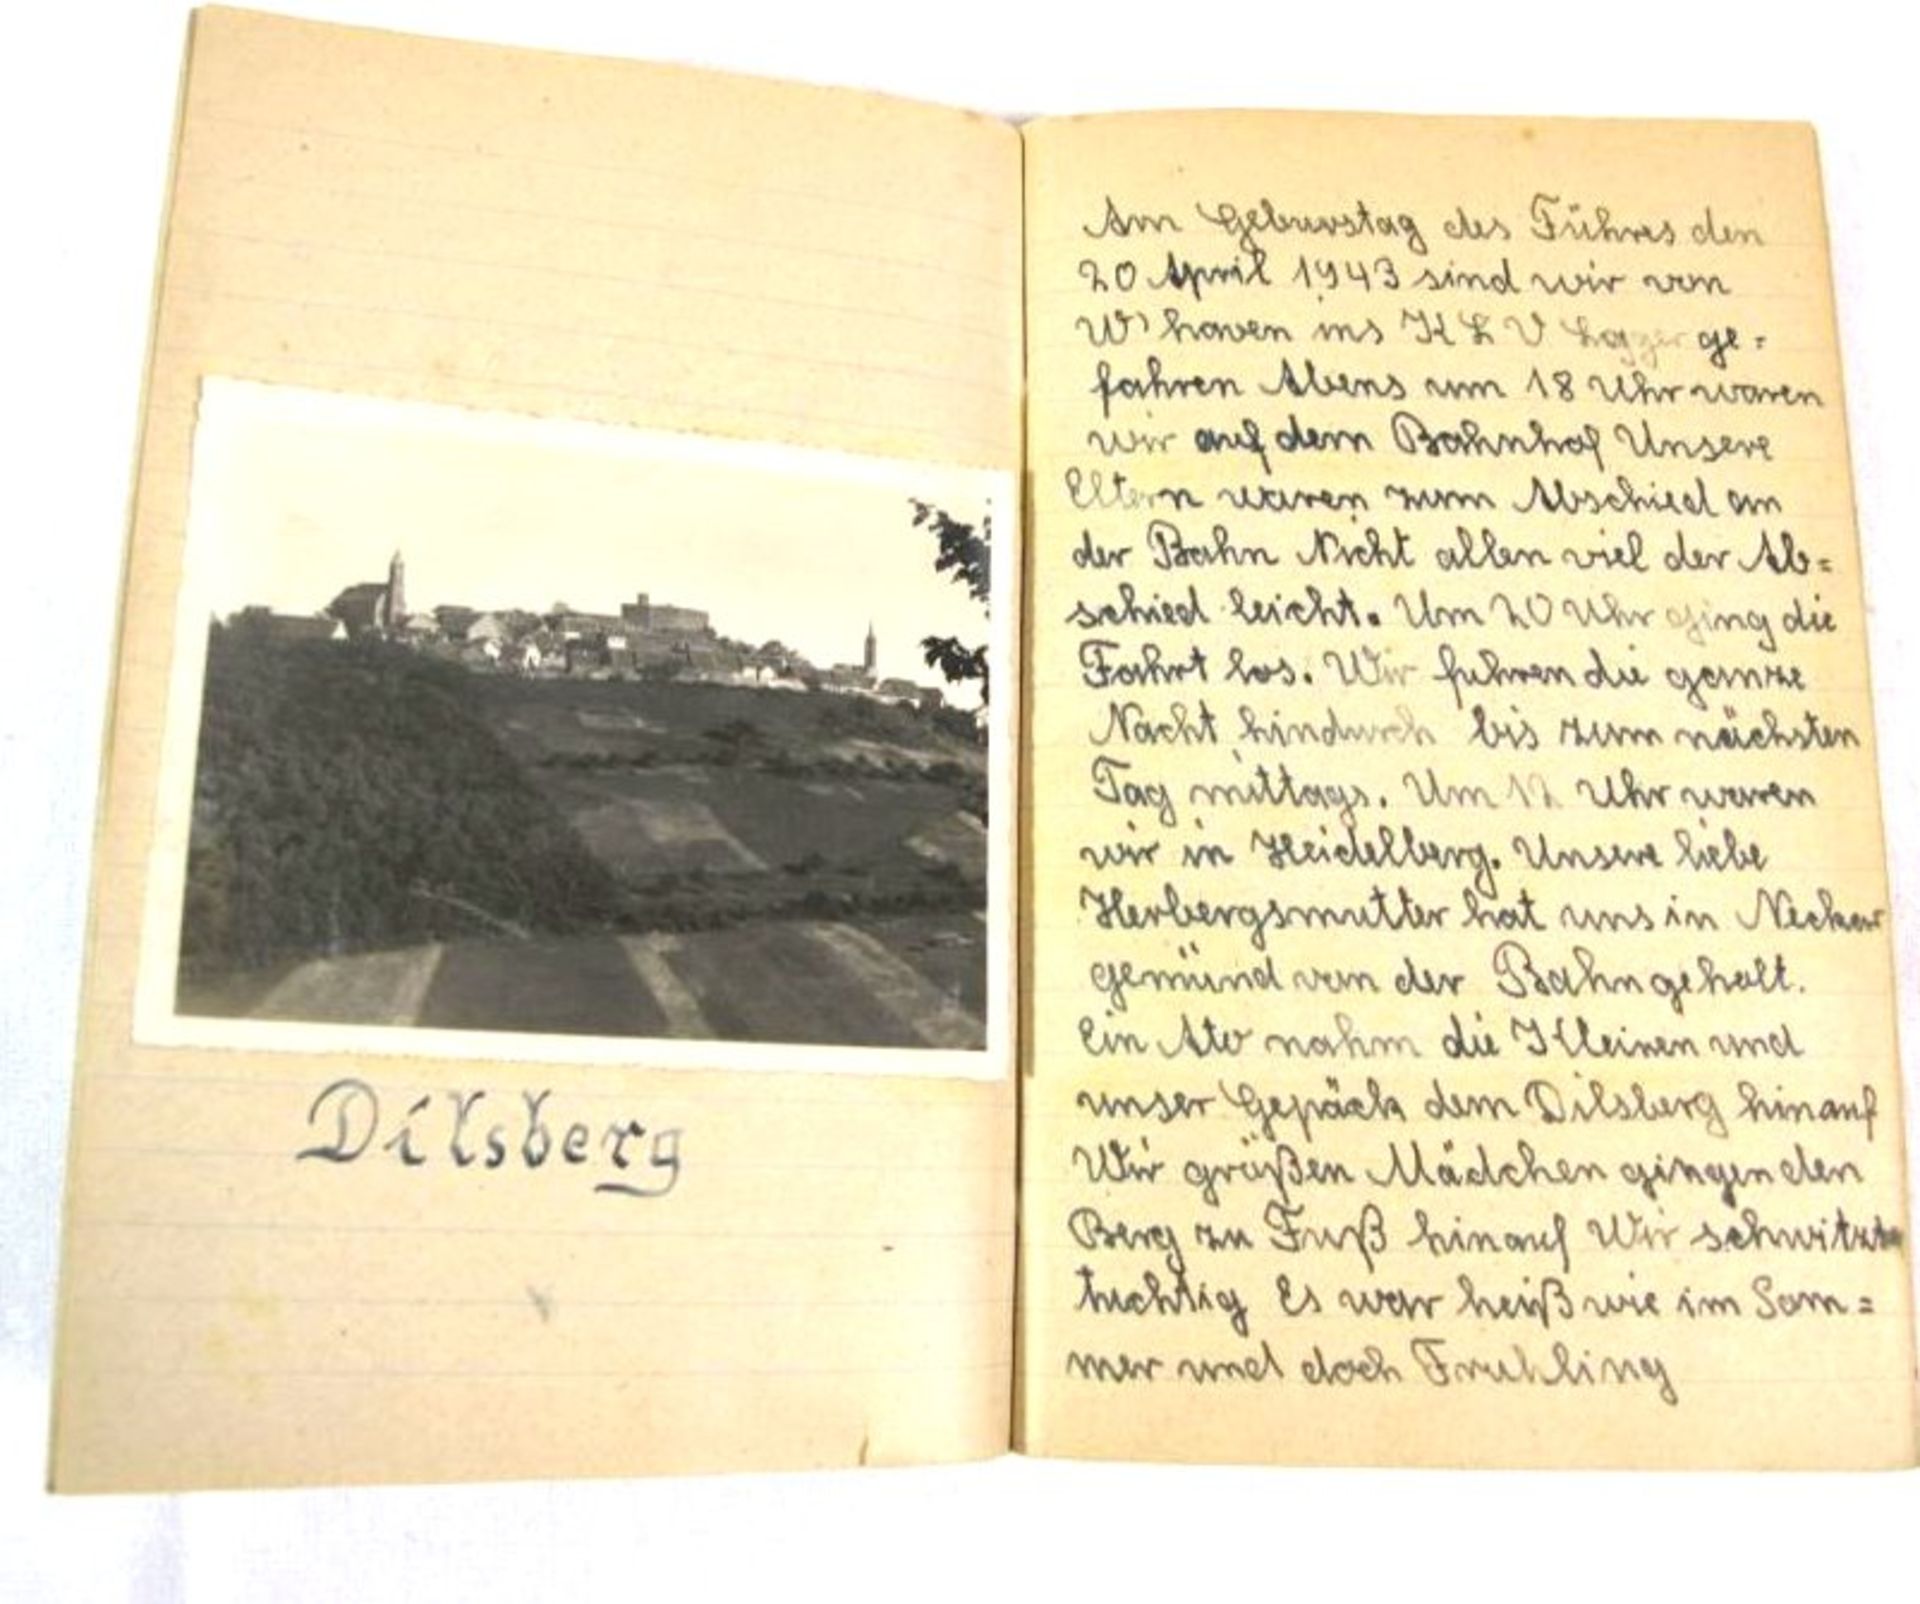 Dilsberg
Am Geburstag des Führes den
20 April 1943 sind wir von
W'haven ins K L V Lagger ge=
fahren Abens um 18 Uhr waren
wir auf dem Bahnhof Unsere
Eltern waren zum Abschied an
der Bahn Nicht allen viel der Ab=
schied leicht. Um 20 Uhr ging die
Fahrt los. Wir fuhren die ganze
Nacht hindurch bis zum nächsten
Tag mittags. Um 12 Uhr waren
wir in Heidelberg. Unsere liebe
Herbergsmutter hat uns in Neckar
gemünd von der Bahn geholt.
Ein Ato nahm die Kleinen und
unser Gepäck dem Dilsberg hinauf
Wir größen Mädchen gingen den
Berg zu Fuß hinauf Wir schwitzten
tuchtig Es war heiß wie im Som=
mer und doch Fruhling